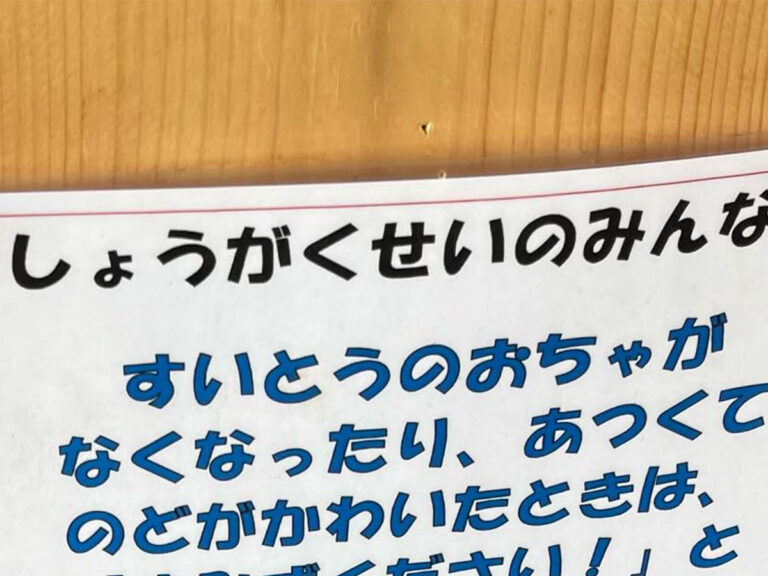 しょうがくせいのみんな
すいとうのおちゃが
なくなったり、あつくて
のどがかわいたときは、
ください！」と